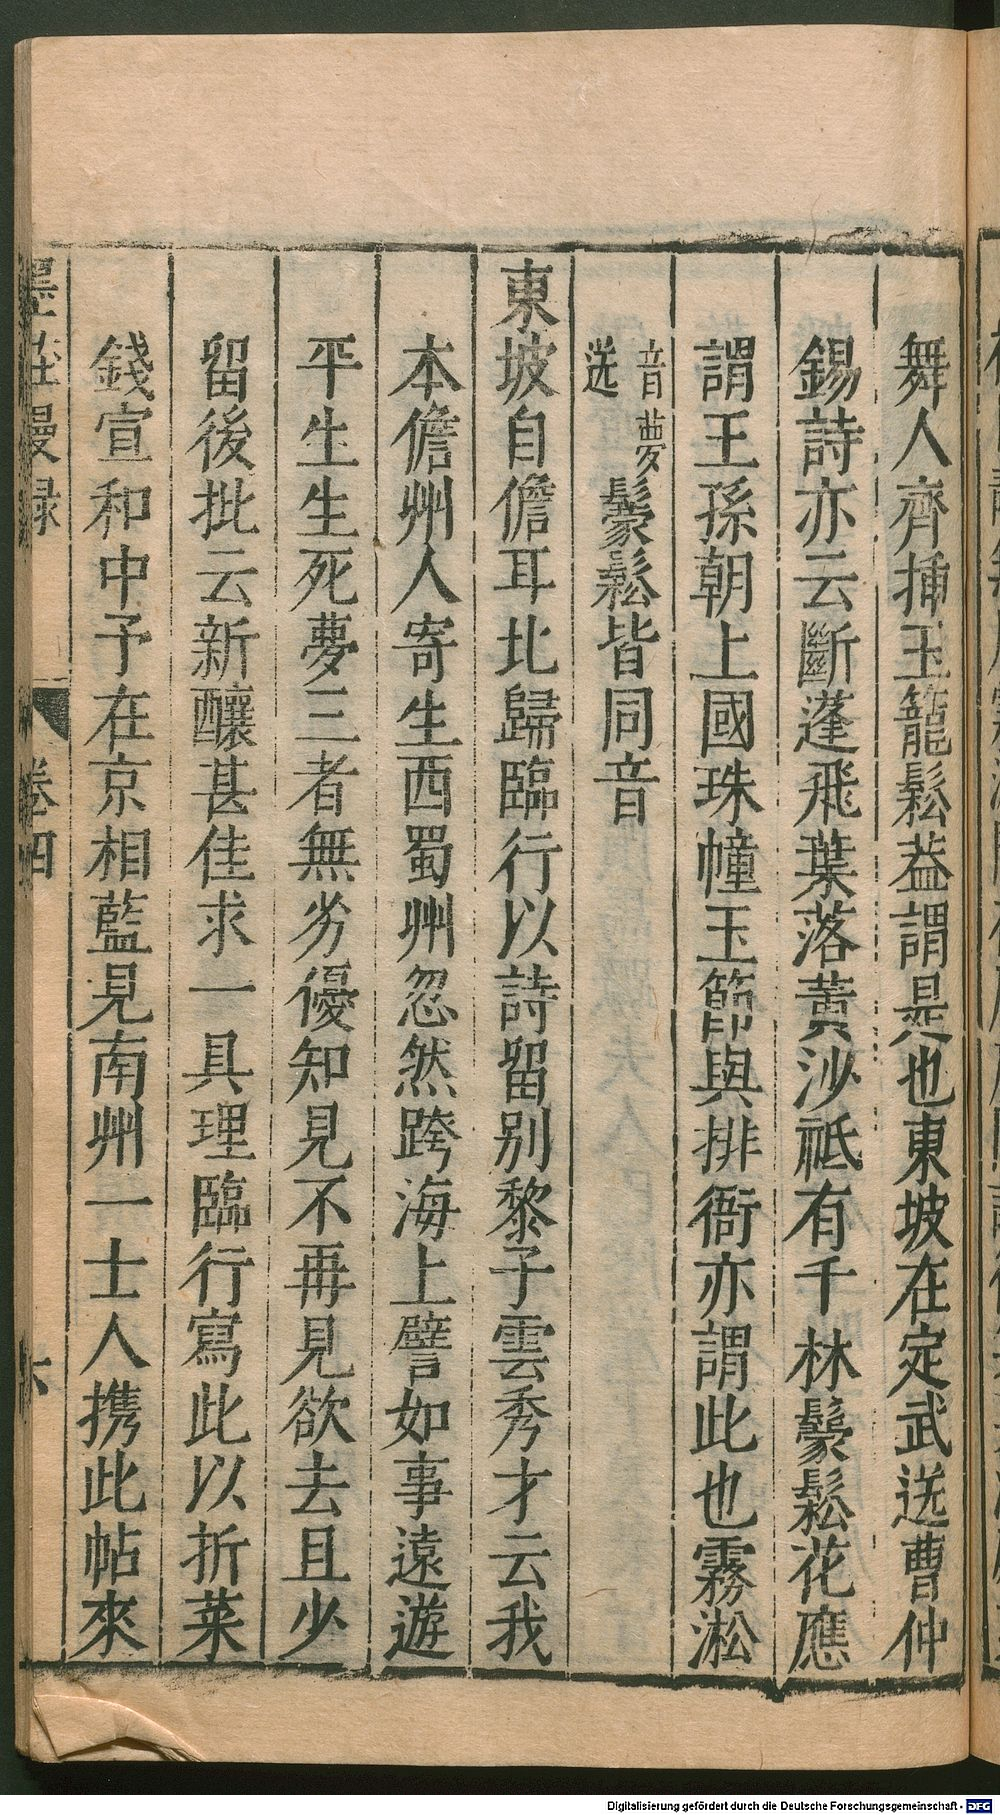 舞人齊揷玉籠鬆葢謂是也東坡在定武送曹仲
錫詩亦云斷蓬飛葉落黄沙祗有千林鬖鬆花應
謂王孫朝上國珠幢玉節與排衙亦謂此也霧淞
音夢送鬖鬆皆同音
東坡自儋耳北歸臨行以詩留别黎子雲秀才云我
本儋州人寄生西蜀州忽然跨海上譬如事遠遊
平生生死夢三者無劣優知見不再見欲去且少
留後批云新釀甚佳求一具理臨行寫此以折菜
錢宣和中予在京相藍見南州一士人携此帖來
墨莊漫録 卷四 六
Digitalisierung gefördert durch die Deutsche Forschungsgemeinschaft - DFG